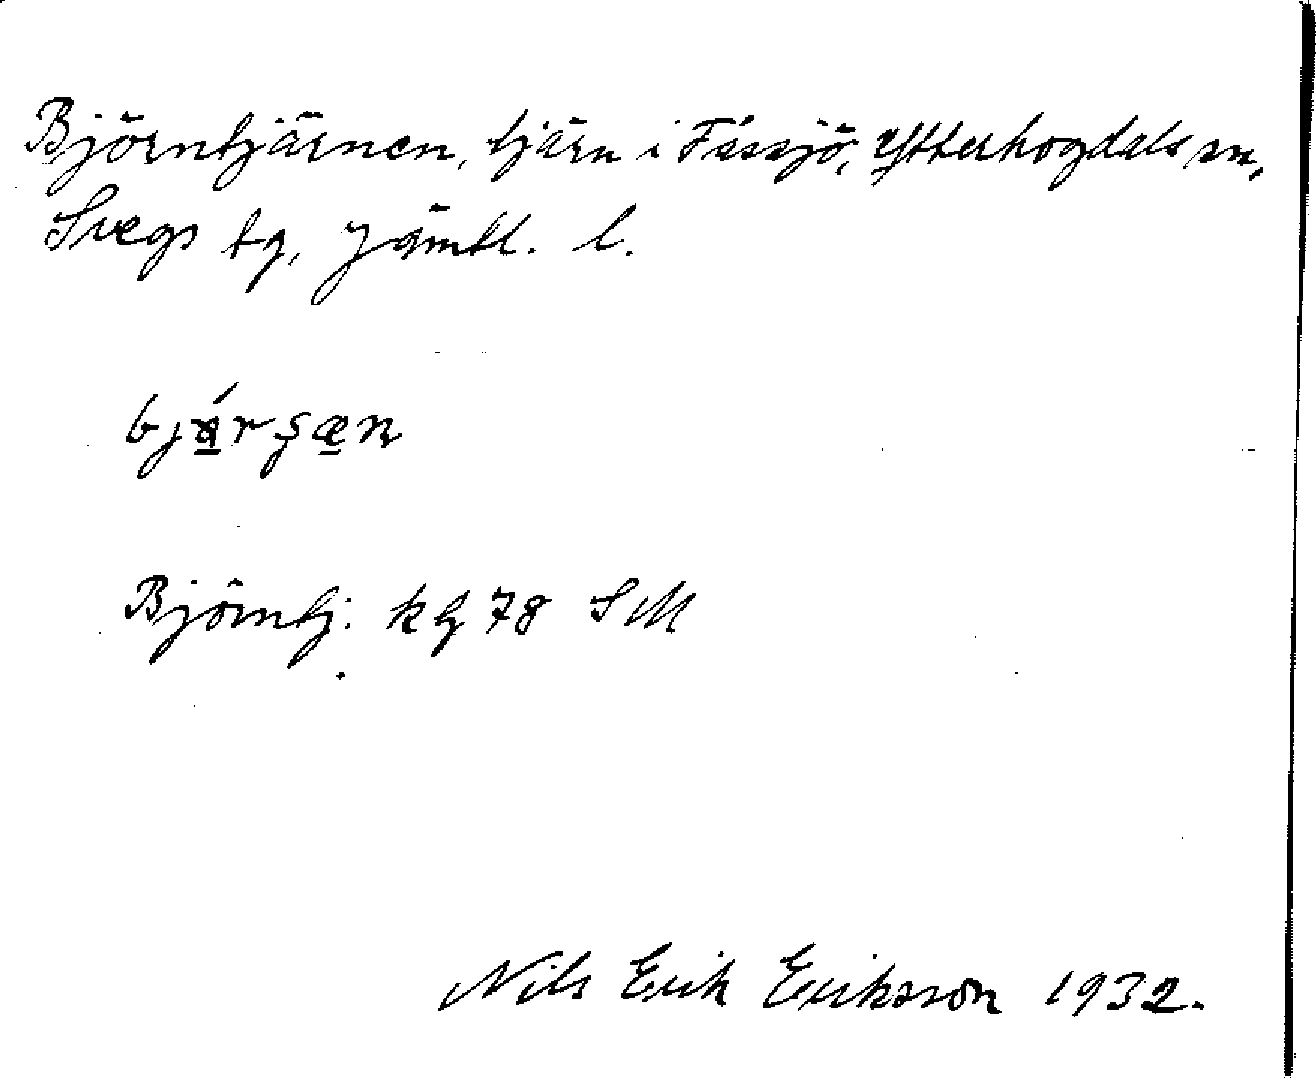 Björntjärnen, tjärn i Fåssjö, Ytterhogdals sn,
Svegs tg, Jämtl. l.
Björntj: kb 78 SM
Nils Erik Eriksson 1932.